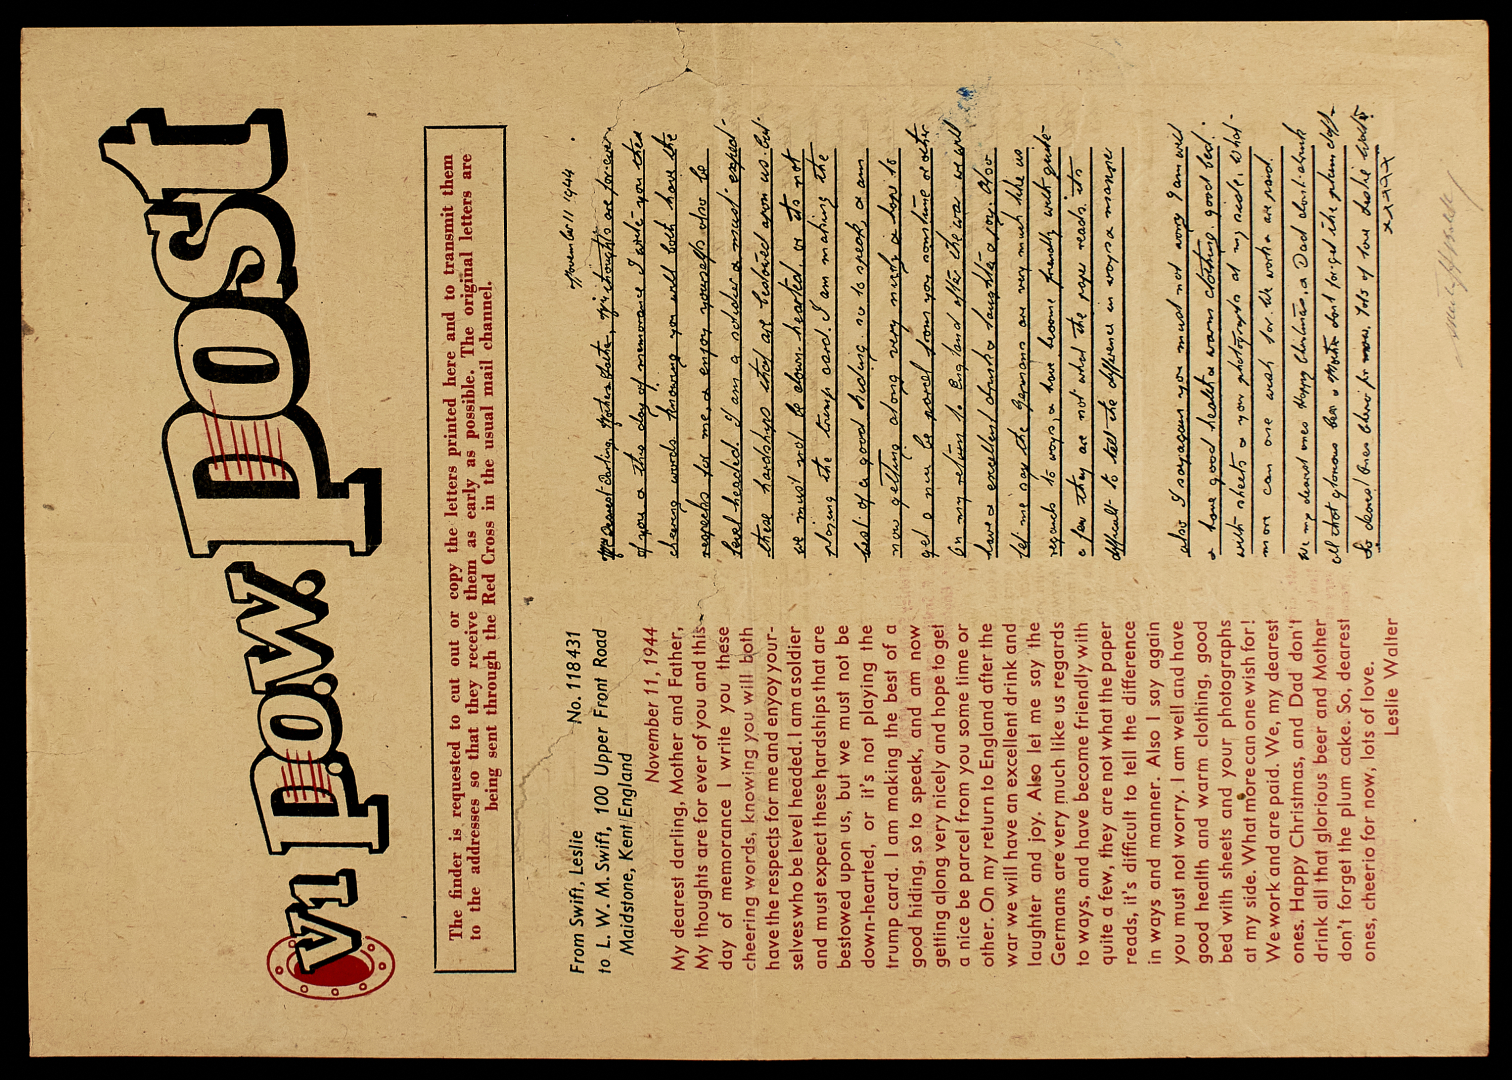 V1 P.O.W. Post
The finder is requested to cut out or copy the letters printed here and to transmit them
to the addresses so that they receive them as early as possible. The original letters are
being sent through the Red Cross in the usual mail channel.
From Swift, Leslie No. 118431
to L. W. M. Swift, 100 Upper Front Road
Maidstone, Kent/England
November 11, 1944
My dearest darling, Mother and Father,
My thoughts are for ever of you and this
day of memorance I write you these
cheering words, knowing you will both
have the respects for me and enjoy your-
selves who be level headed. I am a soldier
and must expect these hardships that are
bestowed upon us, but we must not be
down-hearted, or it's not playing the
trump card. I am making the best of a
good hiding, so to speak, and am now
getting along very nicely and hope to get
a nice be parcel from you some time or
other. On my return to England after the
war we will have an excellent drink and
laughter and joy. Also let me say the
Germans are very much like us regards
to ways, and have become friendly with
quite a few, they are not what the paper
reads, it's difficult to tell the difference
in ways and manner. Also I say again
you must not worry. I am well and have
good health and warm clothing, good
bed with sheets and your photographs
at my side. What more can one wish for!
We work and are paid. We, my dearest
ones. Happy Christmas, and Dad don't
drink all that glorious beer and Mother
don't forget the plum cake. So, dearest
ones, cheerio for now, lots of love.
Leslie Walter
November 11 1944.
My dearest darling Mother & Father, My thoughts are for ever
of you & this day of memorance I write you these
cheering words knowing you will both have the
respects for me, & enjoy yourselfs who be
level headed. I am a soldier & must expect
these hardships that are bestowed upon us but
we must not be down-hearted, or its not
playing the trump card. I am making the
best of a good hiding so to speak, & am
now getting along very nicely & hope to
get a nice be parcel from you sometime or other.
On my return to England after the war we will
have a excellent drink & laughter & joy. Also
let me say the Germans are very much like us
regards to ways, & have become friendly with quite
a few they are not what the paper reads. its
difficult to tell the difference in ways & manner
also I say again you must not worry I am well
& have good health & warm clothing. good bed.
with sheets & your photographs at my side, what
more can one wish for. We work & are paid.
We my dearest ones Happy Christmas, & Dad dont drink
all that glorious beer & Mother dont forget the plum cake
So dearest ones cheerio for now, lots of love Leslie Walter
xxxxx